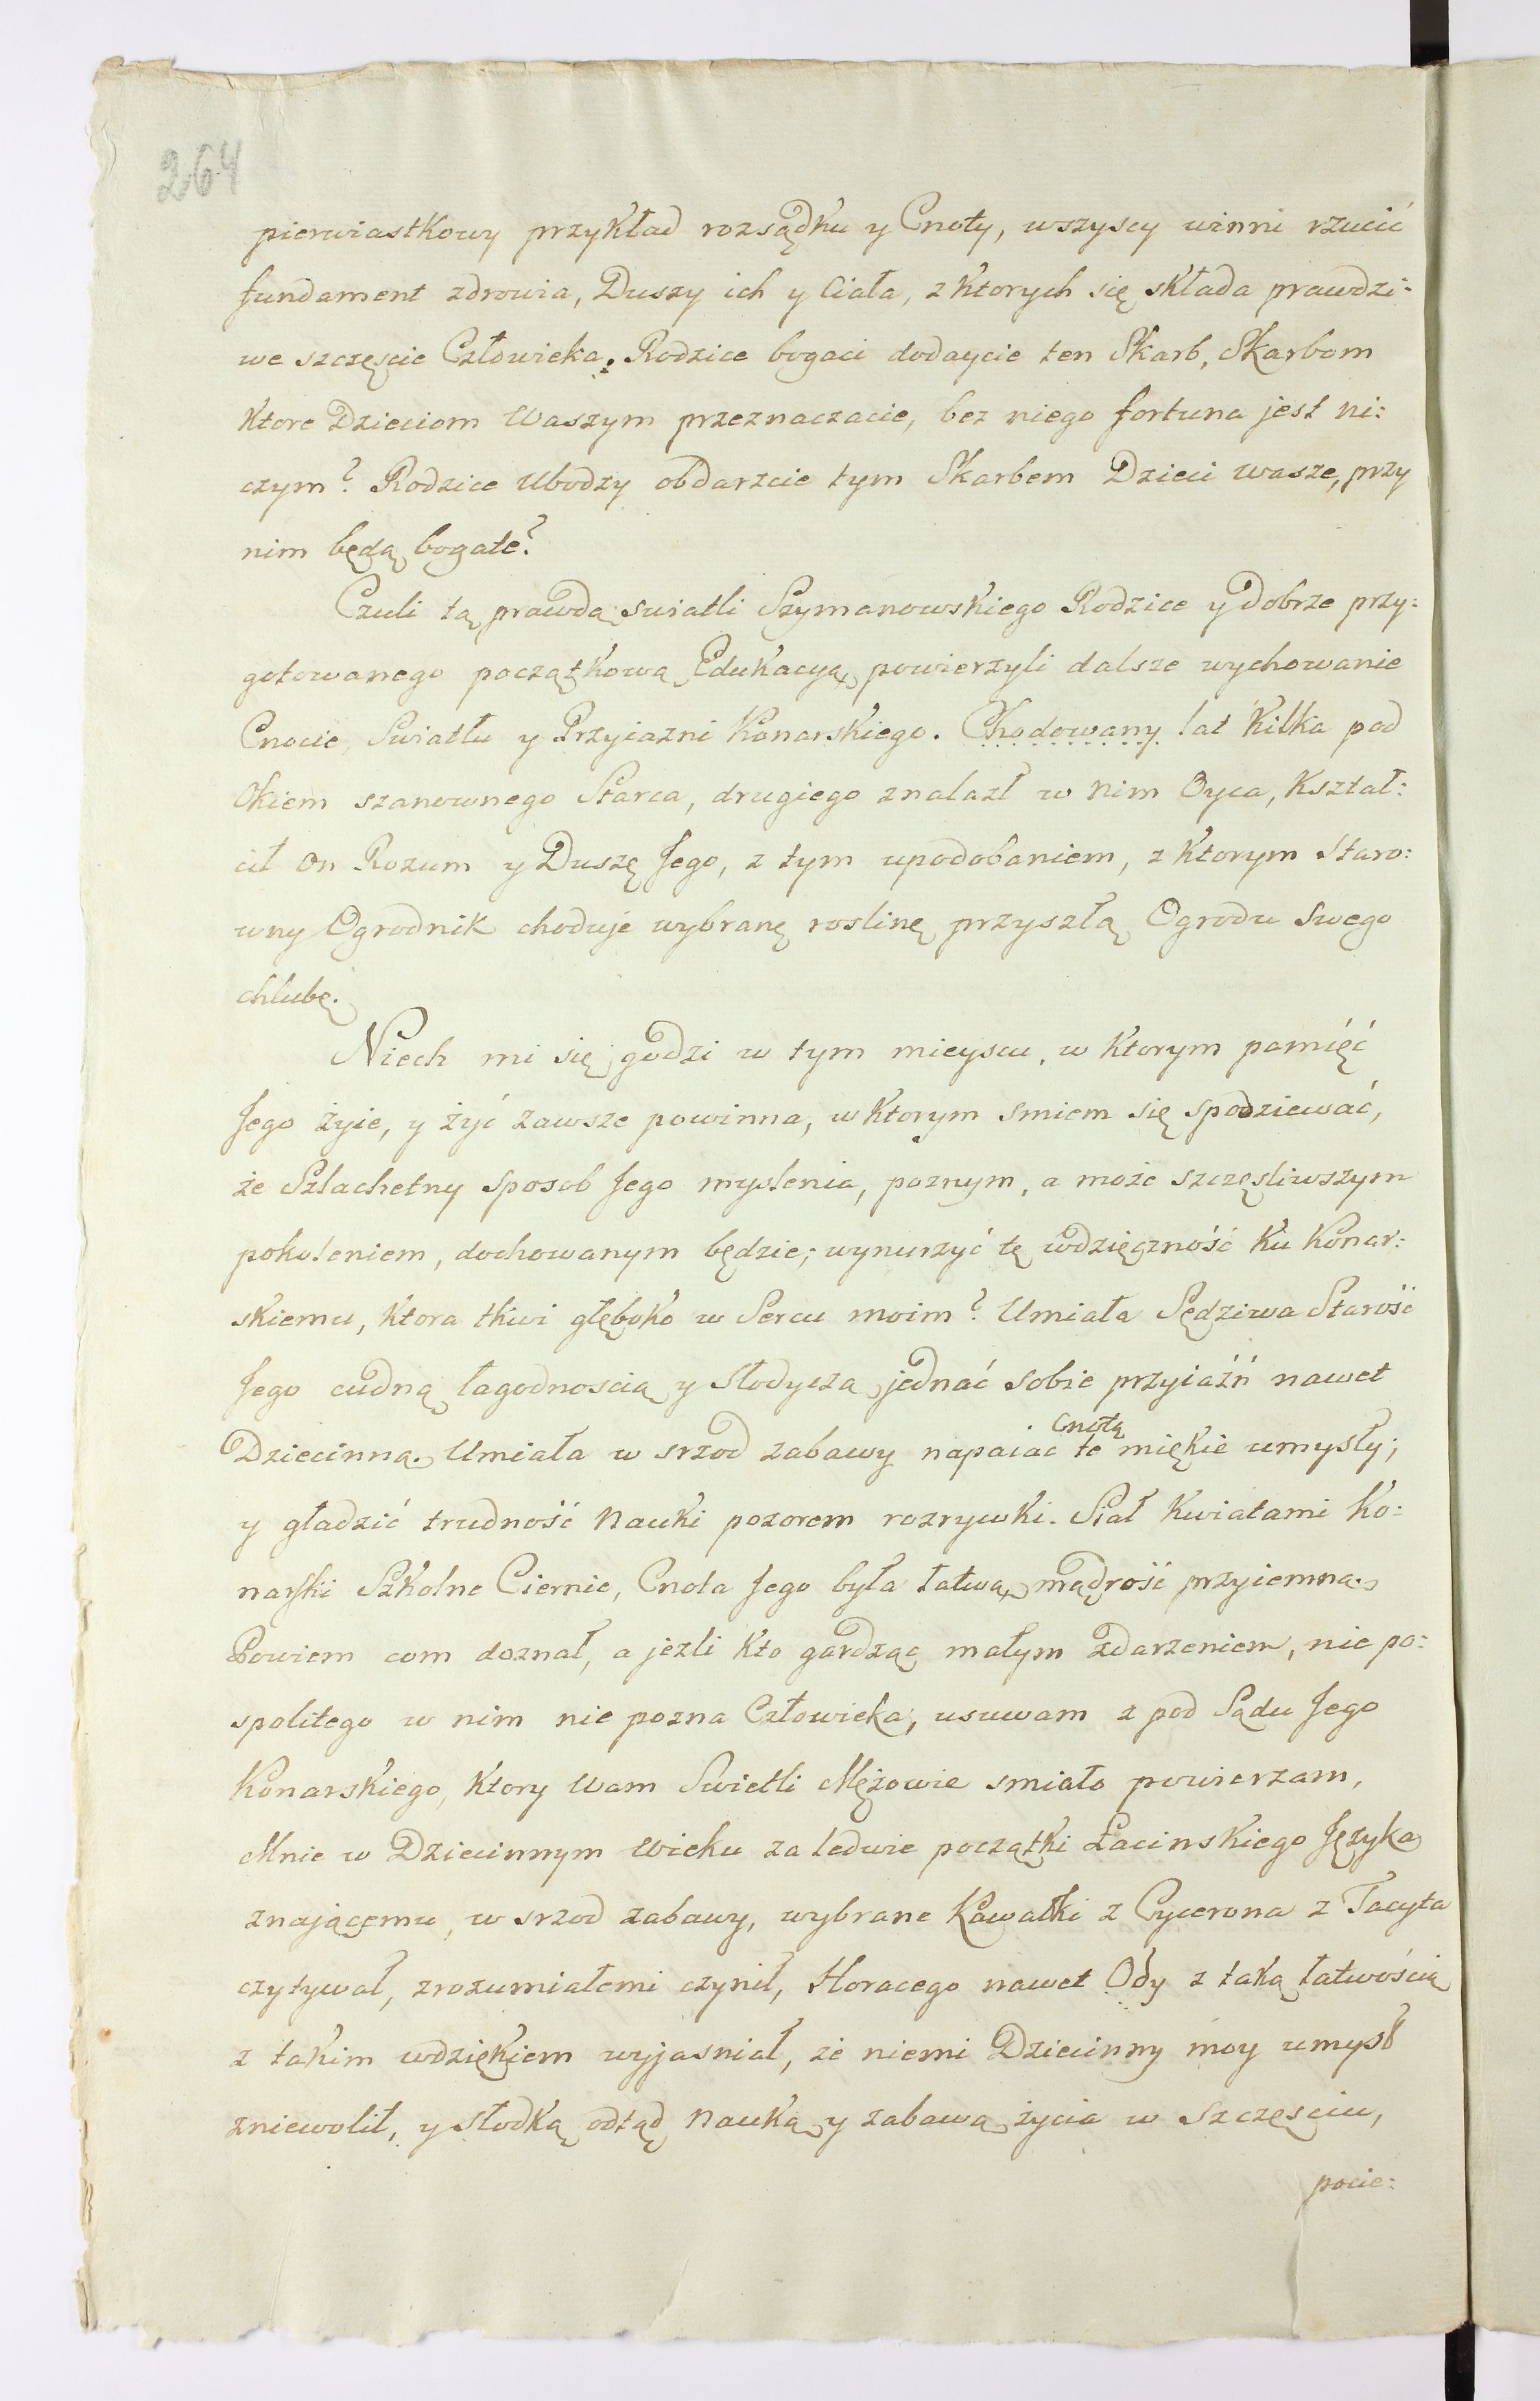 264
pierwiastkowy przykład rozsądku y Cnoty, wszyscy winni rzucić
fundament zdrowia, Duszy ich y Ciała, z ktorych się składa prawdzi:
we szczęscie Człowieka. Rodzice bogaci dodaycie ten Skarb, Skarbom
ktore Dzieciom Waszym przeznaczacie, bez niego fortuna jest ni:
czym? Rodzice Ubodzy obdarzcie tym Skarbem Dzieci wasze, przy
nim będą bogate?
Czuli tą prawdą swiatli Szymanowskiego Rodzice y dobrze przy:
gotowanego początkową Edukacyą, powierzyli dalsze wychowanie
Cnocie, Swiatłu y Przyiazni Konarskiego. Chodowany lat kilka pod
Okiem szanownego Starca, drugiego znalazł w nim Oyca, kształ:
cił on Rozum y Duszę Jego, z tym upodobaniem, z ktorym staro:
wny Ogrodnik choduje wybranę roslinę przyszłą Ogrodu swego
chlubę.
Niech mi się godzi w tym mieyscu, w ktorym pamięć
Jego żyie, y żyć zawsze powinna, w ktorym smiem się spodziewać,
że Szlachetny sposob Jego myslenia, poznym, a może szczęsliwszym
pokoleniem, dochowanym będzie; wynurzyć tę wdzięczność ku Konar:
skiemu, ktora tkwi głęboko w Sercu moim? Umiała Sędziwa Starość
Jego cudną łagodnoscią y słodyczą jednać sobie przyiaźń nawet
Dziecinną. Umiała w srzod zabawy napaiac cnotą te miękie umysły;
y gładzić trudność nauki pozorem rozrywki. Siał kwiatami Ko:
narski Szkolne Ciernie, Cnota Jego była łatwą, mądrość przyiemną.
Powiem com doznał, a jezli kto gardząc małym zdarzeniem, nie po:
spolitego w nim nie pozna Człowieka, usuwam z pod Sądu Jego
Konarskiego, ktory Wam Swietli Mężowie smiało powierzam,
Mnie w Dziecinnym wieku za ledwie początki Łacinskiego Języka
znającemu, w srzod zabawy, wybrane kawałki z Cycerona z Tacyta
czytywał, zrozumiałemi czynił, Horacego nawet Ody z taką łatwością
z takim wdziękiem wyjasniał, że niemi Dziecinny moy umysł
zniewolił, y słodką odtąd nauką y zabawą życia w szczęsciu,
pocie: